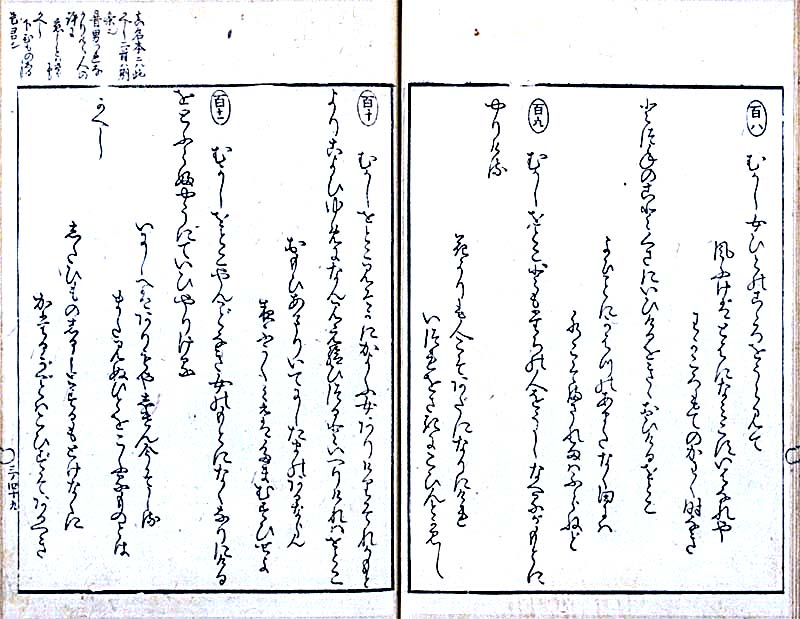 百八
むかし女ひとのこゝろをうらみて
風ふけはとはになみこすいはなれや
わかころもてのかはくときなき
とつねのことくさにいひけるをきゝおひけるをとこ
よひことにかはつのあまたなく田には
水こそまされ雨はふらねと
百九
むかしをとこともたちの人をうしなへるかもとに
やりける
花よりも人こそあたになりにけれ
いつれをさきにこひんとかみし
百十
むかしをとこみそかにかよふ女ありけりそれかもと
よりこよひゆめになんみえ給ひつるといへりけれはをとこ
おもひあまりいてにしたまのあるならん
夜ふかくみえはたまむすひせよ
百十一
むかしをとこやんことなき女のもとになくなりにける
をとふらふやうにていひやりける
いにしへはありもやしけん今そしる
またみぬひとをこふるものとは
かへし
したひものしるしとするもとけなくに
かたるかことはこひすそあるへき
三ノ四十九